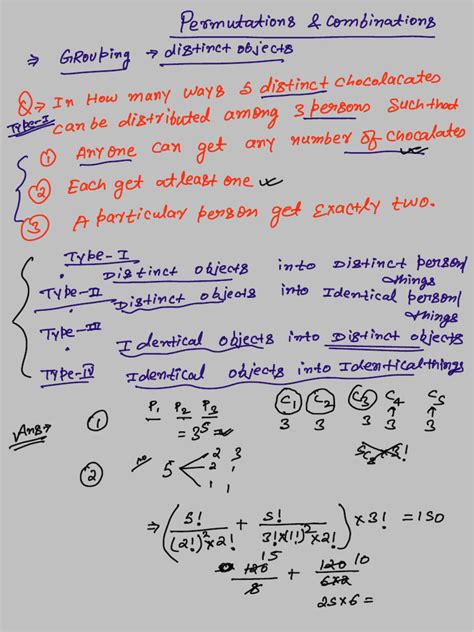 Permutations & Combinations
⇒ Grouping → distinct objects
Q→ In How many ways 5 distinct chocolacates
Type-I can be distributed among 3 persons such that
① Anyone can get any number of chocalates
② Each get atleast one
③ A particular person get exactly two.
Type-I
Distinct objects into Distinct person/things
Type-II
Distinct objects into Identical person/things
Type-III
Identical objects into Distinct objects
Type-IV
Identical objects into Identical things
Ans→ ① P1 P2 P3 C1 C2 C3 C4 C5
= 3^5 3 3 3 3 3
② 5 2 3
2 1
1 1
⇒ (5!/((2!)^2×2!) + 5!/(3!×(1!)^2×2!)) ×3! = 150
120/8 15 + 120/6×2 10
25×6 =